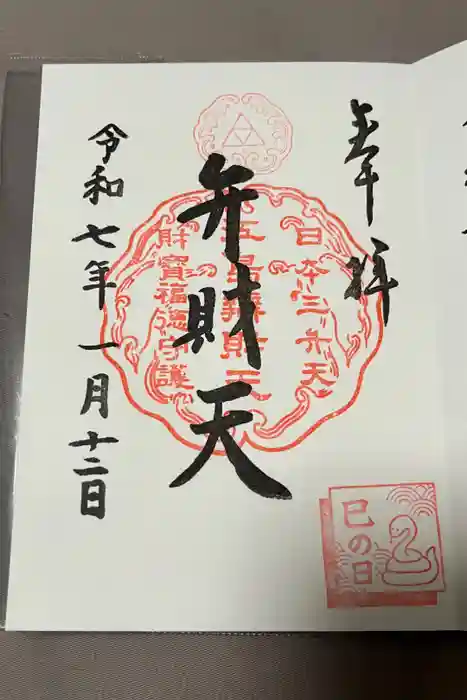 奉拝
日本三弁天
江島辨財天
財寶福徳守護
弁財天
令和七年一月十二日
巳の日